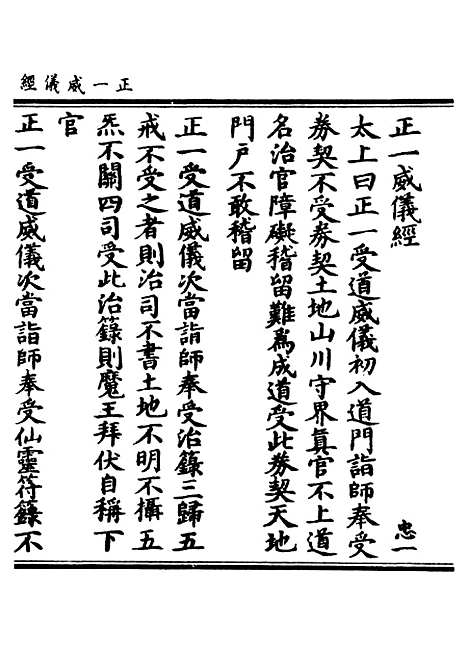 正一威儀經
正一威儀經 忠一
太上曰正一受道威儀初入道門詣師奉受
券契不受券契土地山川守界真官不上道
名治官障礙稽留難爲成道受此券契天地
門戶不敢稽留
正一受道威儀次當詣師奉受治籙三歸五
戒不受之者則治司不書土地不明不攝五
炁不關四司受此治籙則魔王拜伏自稱下
官
正一受道威儀次當詣師奉受仙靈符籙不